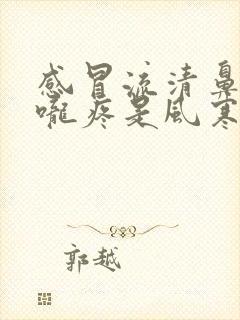 感冒流清鼻
嚨疼是風寒
郭越